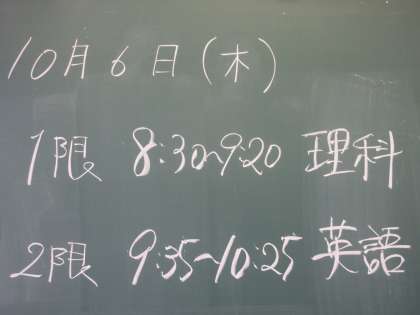 10月6日(木)
1限 8:30~9:20 理科
2限 9:35~10:25 英語